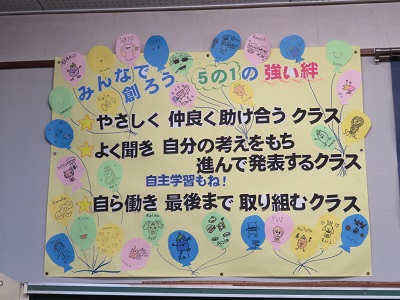 みんなで
創ろう 5の1の 強い絆
★やさしく 仲良く助け合う クラス
★よく聞き 自分の考えをもち
進んで発表するクラス
自主学習もね!
★自ら働き 最後まで 取り組むクラス
YUI